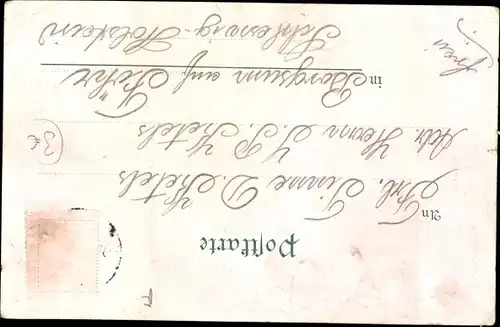 Postkarte
An Frl. Tinne D. Ketels
Adr. Herrn J. P. Ketels
in Borgsum auf Föhr
Schleswig-Holstein
frei